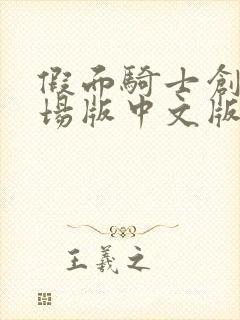 假面騎士創
場版中文版
王羲之